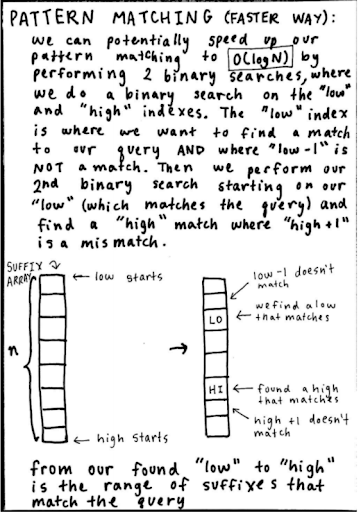 PATTERN MATCHING (FASTER WAY):
we can potentially speed up our
pattern matching to O(logN) by
performing 2 binary searches, where
we do a binary search on the "low"
and "high" indexes. The "low" index
is where we want to find a match
to our query AND where "low-1" is
NOT a match. Then we perform our
2nd binary search starting on our
"low" (which matches the query) and
find a "high" match where "high+1"
is a mismatch.
SUFFIX
ARRAY
low starts
n
high starts
low-1 doesn't
match
LO
we find a low
that matches
HI
found a high
that matches
high +1 doesn't
match
from our found "low" to "high"
is the range of suffixes that
match the query